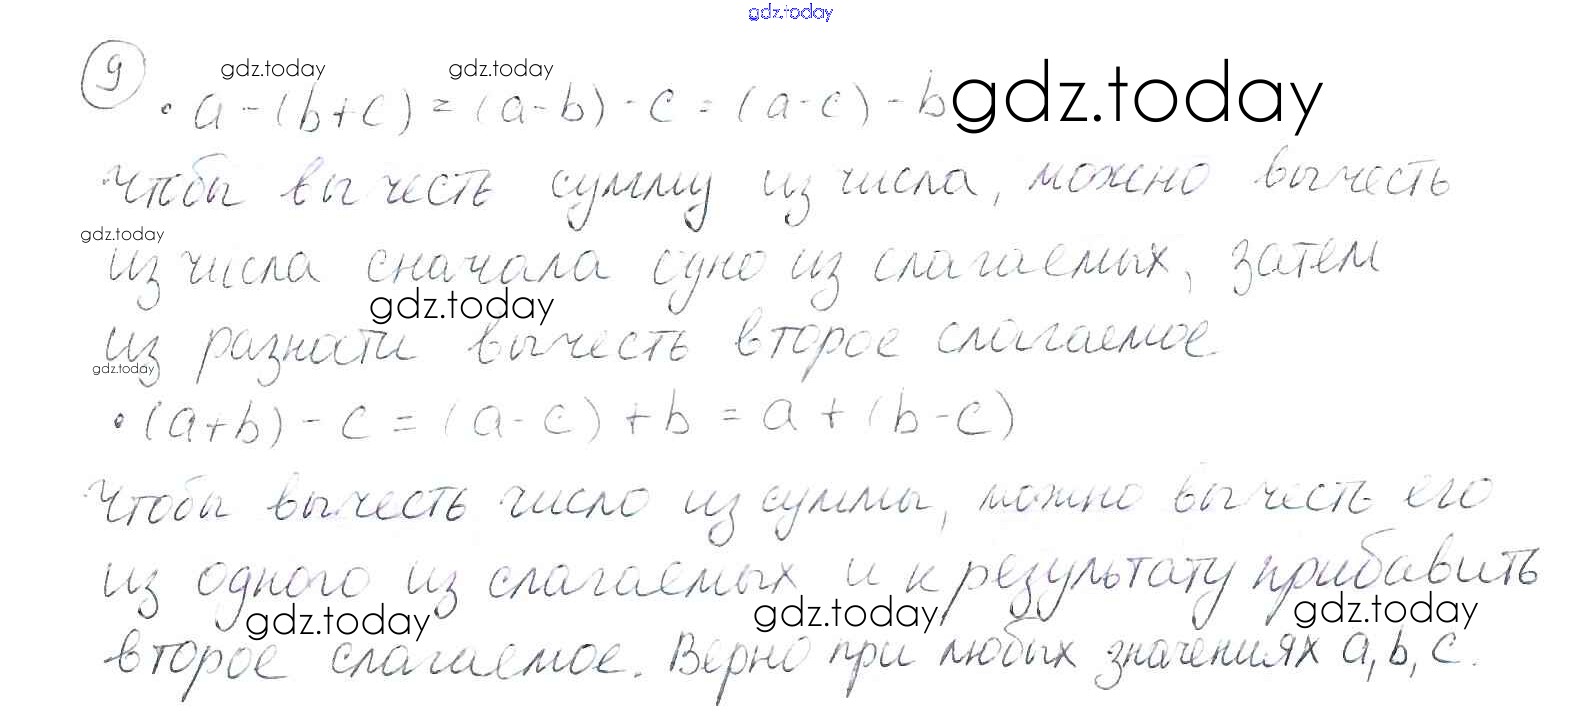 gdz.today
9
gdz.today gdz.today
• a - (b + c) = (a - b) - c = (a - c) - b gdz.today
Чтобы вычесть сумму из числа, можно вычесть
gdz.today
из числа сначала одно из слагаемых, затем
gdz.today
из разности вычесть второе слагаемое
gdz.today
• (a + b) - c = (a - c) + b = a + (b - c)
Чтобы вычесть число из суммы, можно вычесть его
из одного из слагаемых и к результату прибавить
gdz.today gdz.today gdz.today
второе слагаемое. Верно при любых значениях a, b, c.